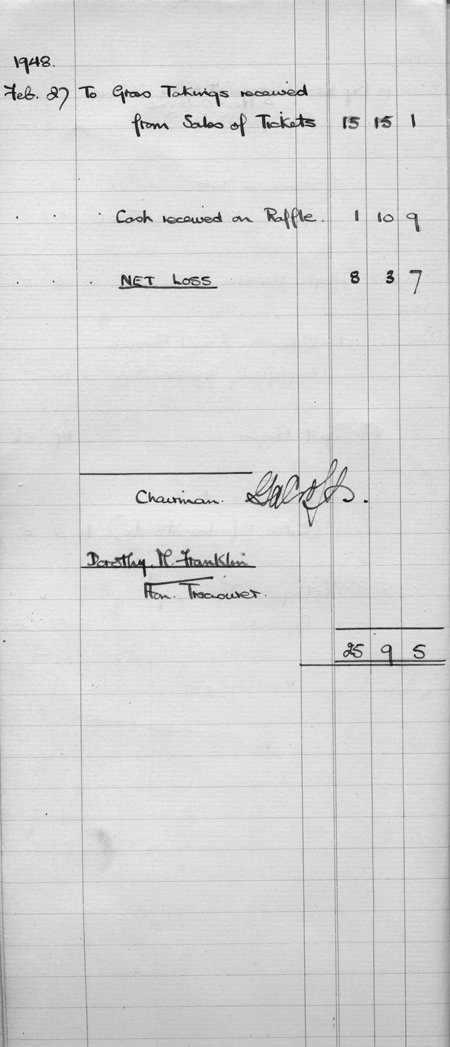 1948.
Feb. 27 To Gross Takings received
from Sales of Tickets 15 15 1
. . . Cash received on Raffle. 1 10 9
. . . NET LOSS 8 3 7
Chairman.
Dorothy M. Franklin
Hon. Treasurer.
25 9 5